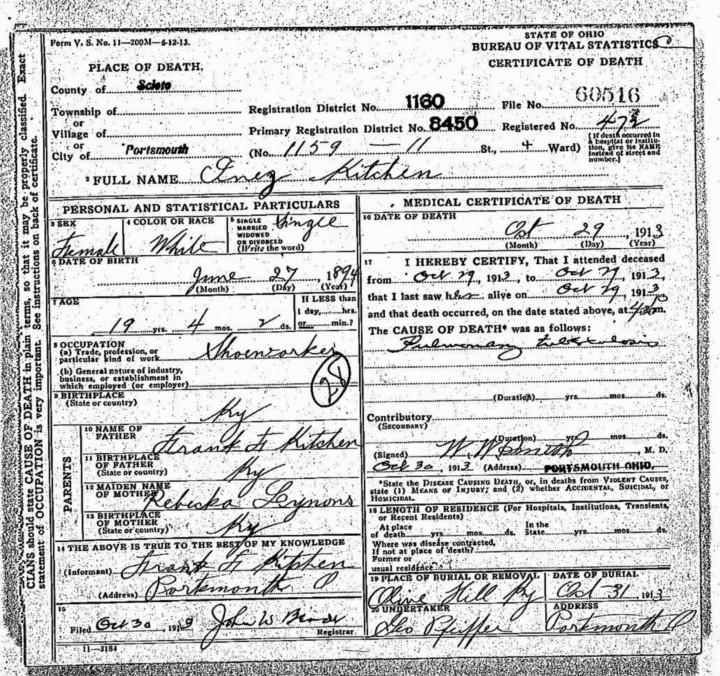 Form V. S. No. 11—200M—6-12-13.
STATE OF OHIO
BUREAU OF VITAL STATISTICS
CERTIFICATE OF DEATH
PLACE OF DEATH.
County of Scioto
Township of
or
Village of
or
City of Portsmouth
Registration District No. 1160
File No. 60516
Primary Registration District No. 8450
Registered No. 472
(No. 1159 — 11 St., 4 Ward)
(If death occurred in a hospital or institution, give its NAME instead of street and number.)
2 FULL NAME Inez Kitchen
PERSONAL AND STATISTICAL PARTICULARS
3 SEX
Female
4 COLOR OR RACE
White
5 SINGLE
MARRIED
WIDOWED
OR DIVORCED
(Write the word)
Single
6 DATE OF BIRTH
June 27 1894
(Month) (Day) (Year)
7 AGE
19 yrs. 4 mos. 2 ds.
If LESS than
1 day, hrs.
or min.?
8 OCCUPATION
(a) Trade, profession, or
particular kind of work
Shoeworker
(b) General nature of industry,
business, or establishment in
which employed (or employer)
28
9 BIRTHPLACE
(State or country)
Ky
PARENTS
10 NAME OF
FATHER
Frank F Kitchen
11 BIRTHPLACE
OF FATHER
(State or country)
Ky
12 MAIDEN NAME
OF MOTHER
Rebecka Lynons
13 BIRTHPLACE
OF MOTHER
(State or country)
Ky
14 THE ABOVE IS TRUE TO THE BEST OF MY KNOWLEDGE
(Informant) Frank F Kitchen
(Address) Portsmouth O
15
Filed Oct 30 1913 John W
Registrar
11—3184
MEDICAL CERTIFICATE OF DEATH
16 DATE OF DEATH
Oct 29, 1913
(Month) (Day) (Year)
17 I HEREBY CERTIFY, That I attended deceased
from Oct 29, 1913, to Oct 29, 1913,
that I last saw her alive on Oct 29, 1913
and that death occurred, on the date stated above, at m.
The CAUSE OF DEATH* was as follows:
Pulmonary tuberculosis
(Duration) yrs. mos. ds.
Contributory
(SECONDARY)
(Duration) yrs. mos. ds.
(Signed) W. W. M. D.
Oct 30, 1913 (Address) PORTSMOUTH OHIO.
*State the DISEASE CAUSING DEATH, or, in deaths from VIOLENT CAUSES,
state (1) MEANS OF INJURY; and (2) whether ACCIDENTAL, SUICIDAL, or
HOMICIDAL.
18 LENGTH OF RESIDENCE (For Hospitals, Institutions, Transients,
or Recent Residents)
At place
of death yrs. mos. ds.
In the
State yrs. mos. ds.
Where was disease contracted,
If not at place of death?
Former or
usual residence
19 PLACE OF BURIAL OR REMOVAL
Olive Hill Ky
DATE OF BURIAL
Oct 31, 1913
20 UNDERTAKER
Geo Pfeiffer
ADDRESS
Portsmouth O
CIANS should state CAUSE OF DEATH in plain terms, so that it may be properly classified. Exact
statement of OCCUPATION is very important. See instructions on back of certificate.